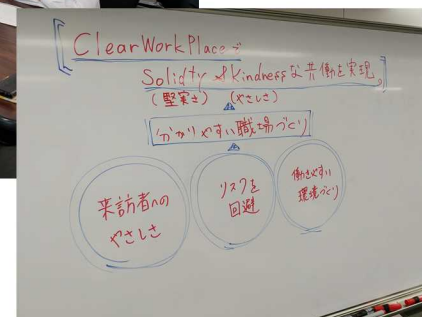 ClearWorkPlaceで
Solidity & Kindnessな共働を実現。
(堅実さ) (やさしさ)
分かりやすい職場づくり
来訪者への
やさしさ
リスクを
回避
働きやすい
環境づくり